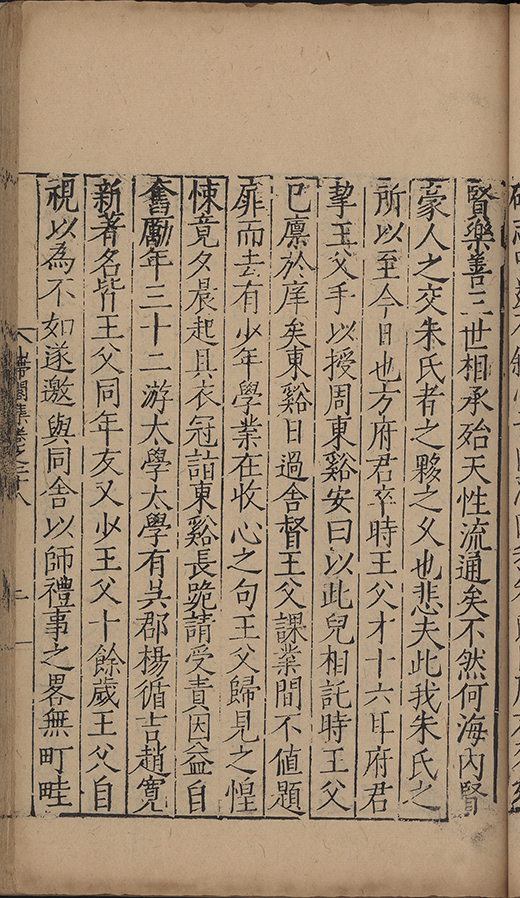 賢樂善三世相承殆天性流通矣不然何海內賢
豪人之交朱氏者之夥之久也悲夫此我朱氏之
所以至今日也方府君卒時王父才十六耳府君
挈王父手以授周東谿安曰以此兒相託時王父
已廩於庠矣東谿日過舍督王父課業間不值題
扉而去有少年學業在收心之句王父歸見之惶
悚竟夕晨起具衣冠詣東谿長跪請受責因益自
奮勵年三十二游太學太學有吳郡楊循吉趙寬
新著名皆王父同年友又少王父十餘歲王父自
視以為不如遂邀與同舍以師禮事之畧無町畦
集卷之十八